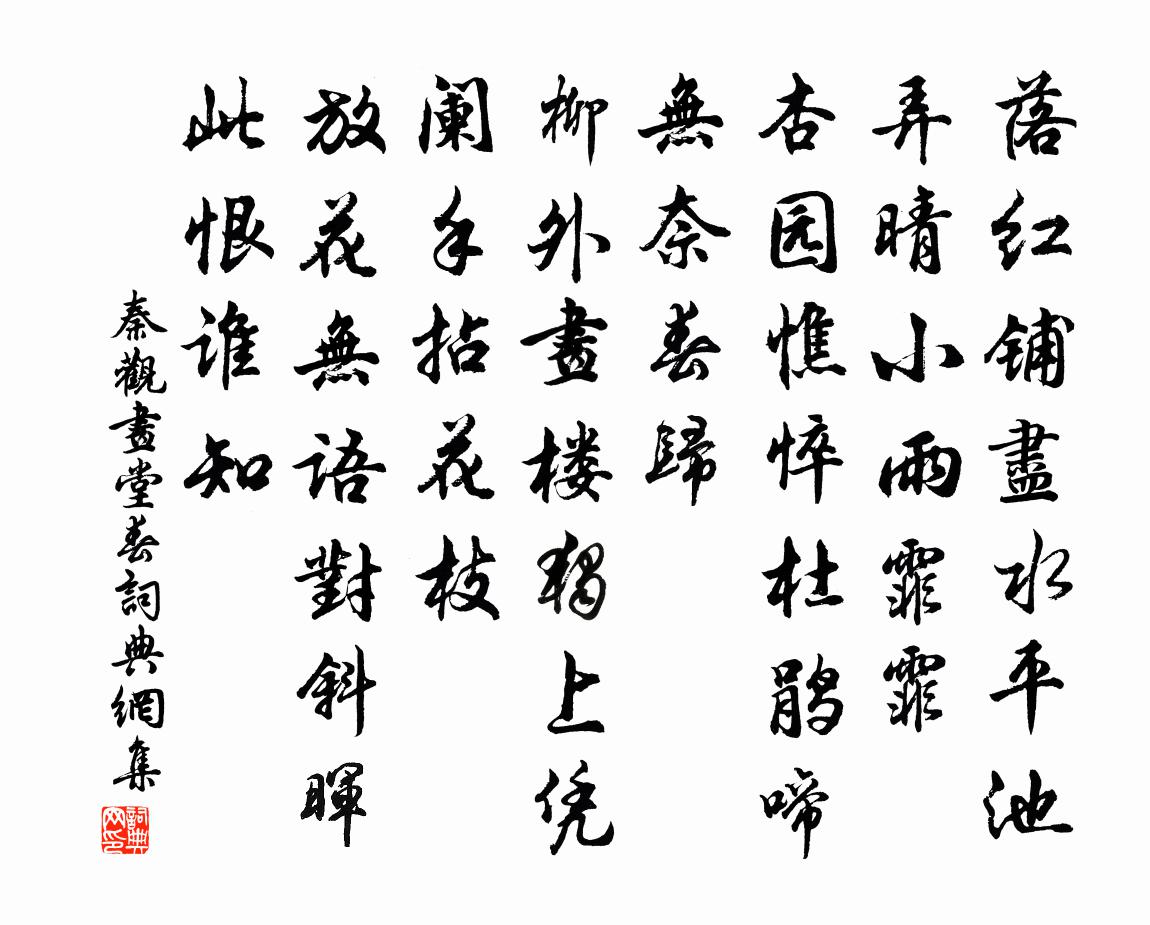 落红铺盡水平池
弄晴小雨霏霏
杏园憔悴杜鹃啼
無奈春歸
柳外畫楼独上
凭阑手拈花枝
放花無語對斜暉
此恨谁知
秦觀畫堂春詞典網集
詞典网印